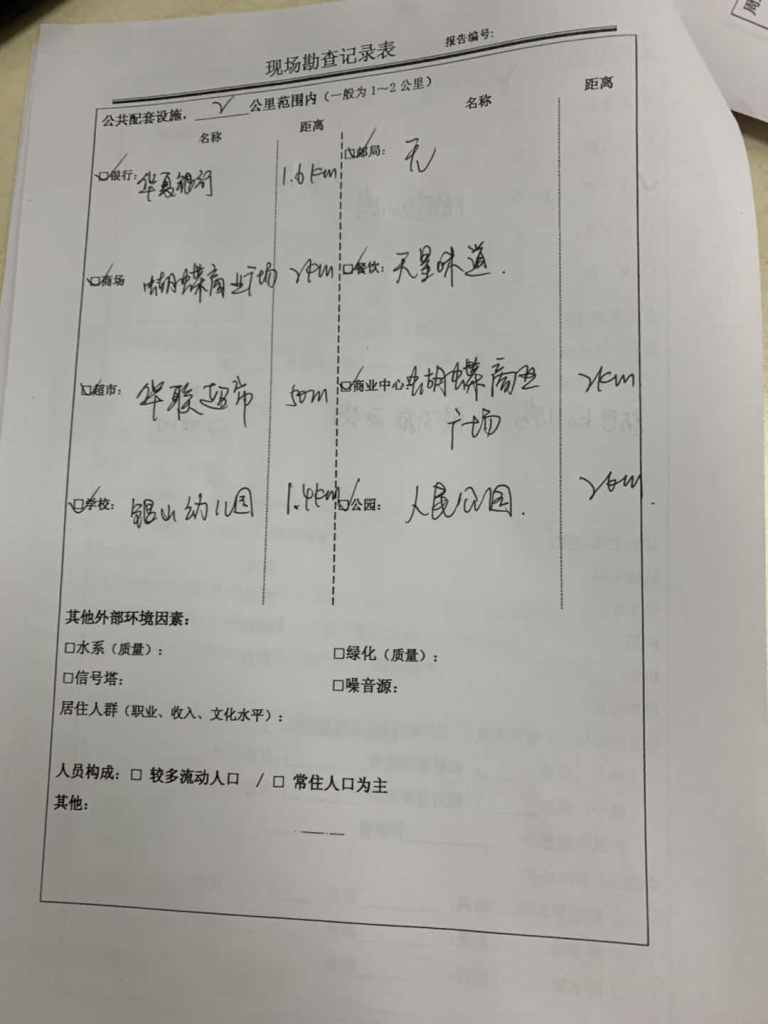 现场勘查记录表
报告编号:
公共配套设施, 2 公里范围内(一般为 1～2 公里)
名称 距离 名称 距离
☑银行: 华夏银行 1.6km ☑邮局: 无
☑商场 蝴蝶商业广场 2km ☑餐饮: 天星味道.
☑超市: 华联超市 50m ☑商业中心 蝴蝶商业 2km
广场
☑学校: 锟山幼儿园 1.4km ☑公园: 人民公园.
其他外部环境因素:
☐水系(质量): ☐绿化(质量):
☐信号塔: ☐噪音源:
居住人群(职业、收入、文化水平):
人员构成: ☐ 较多流动人口 / ☐ 常住人口为主
其他: